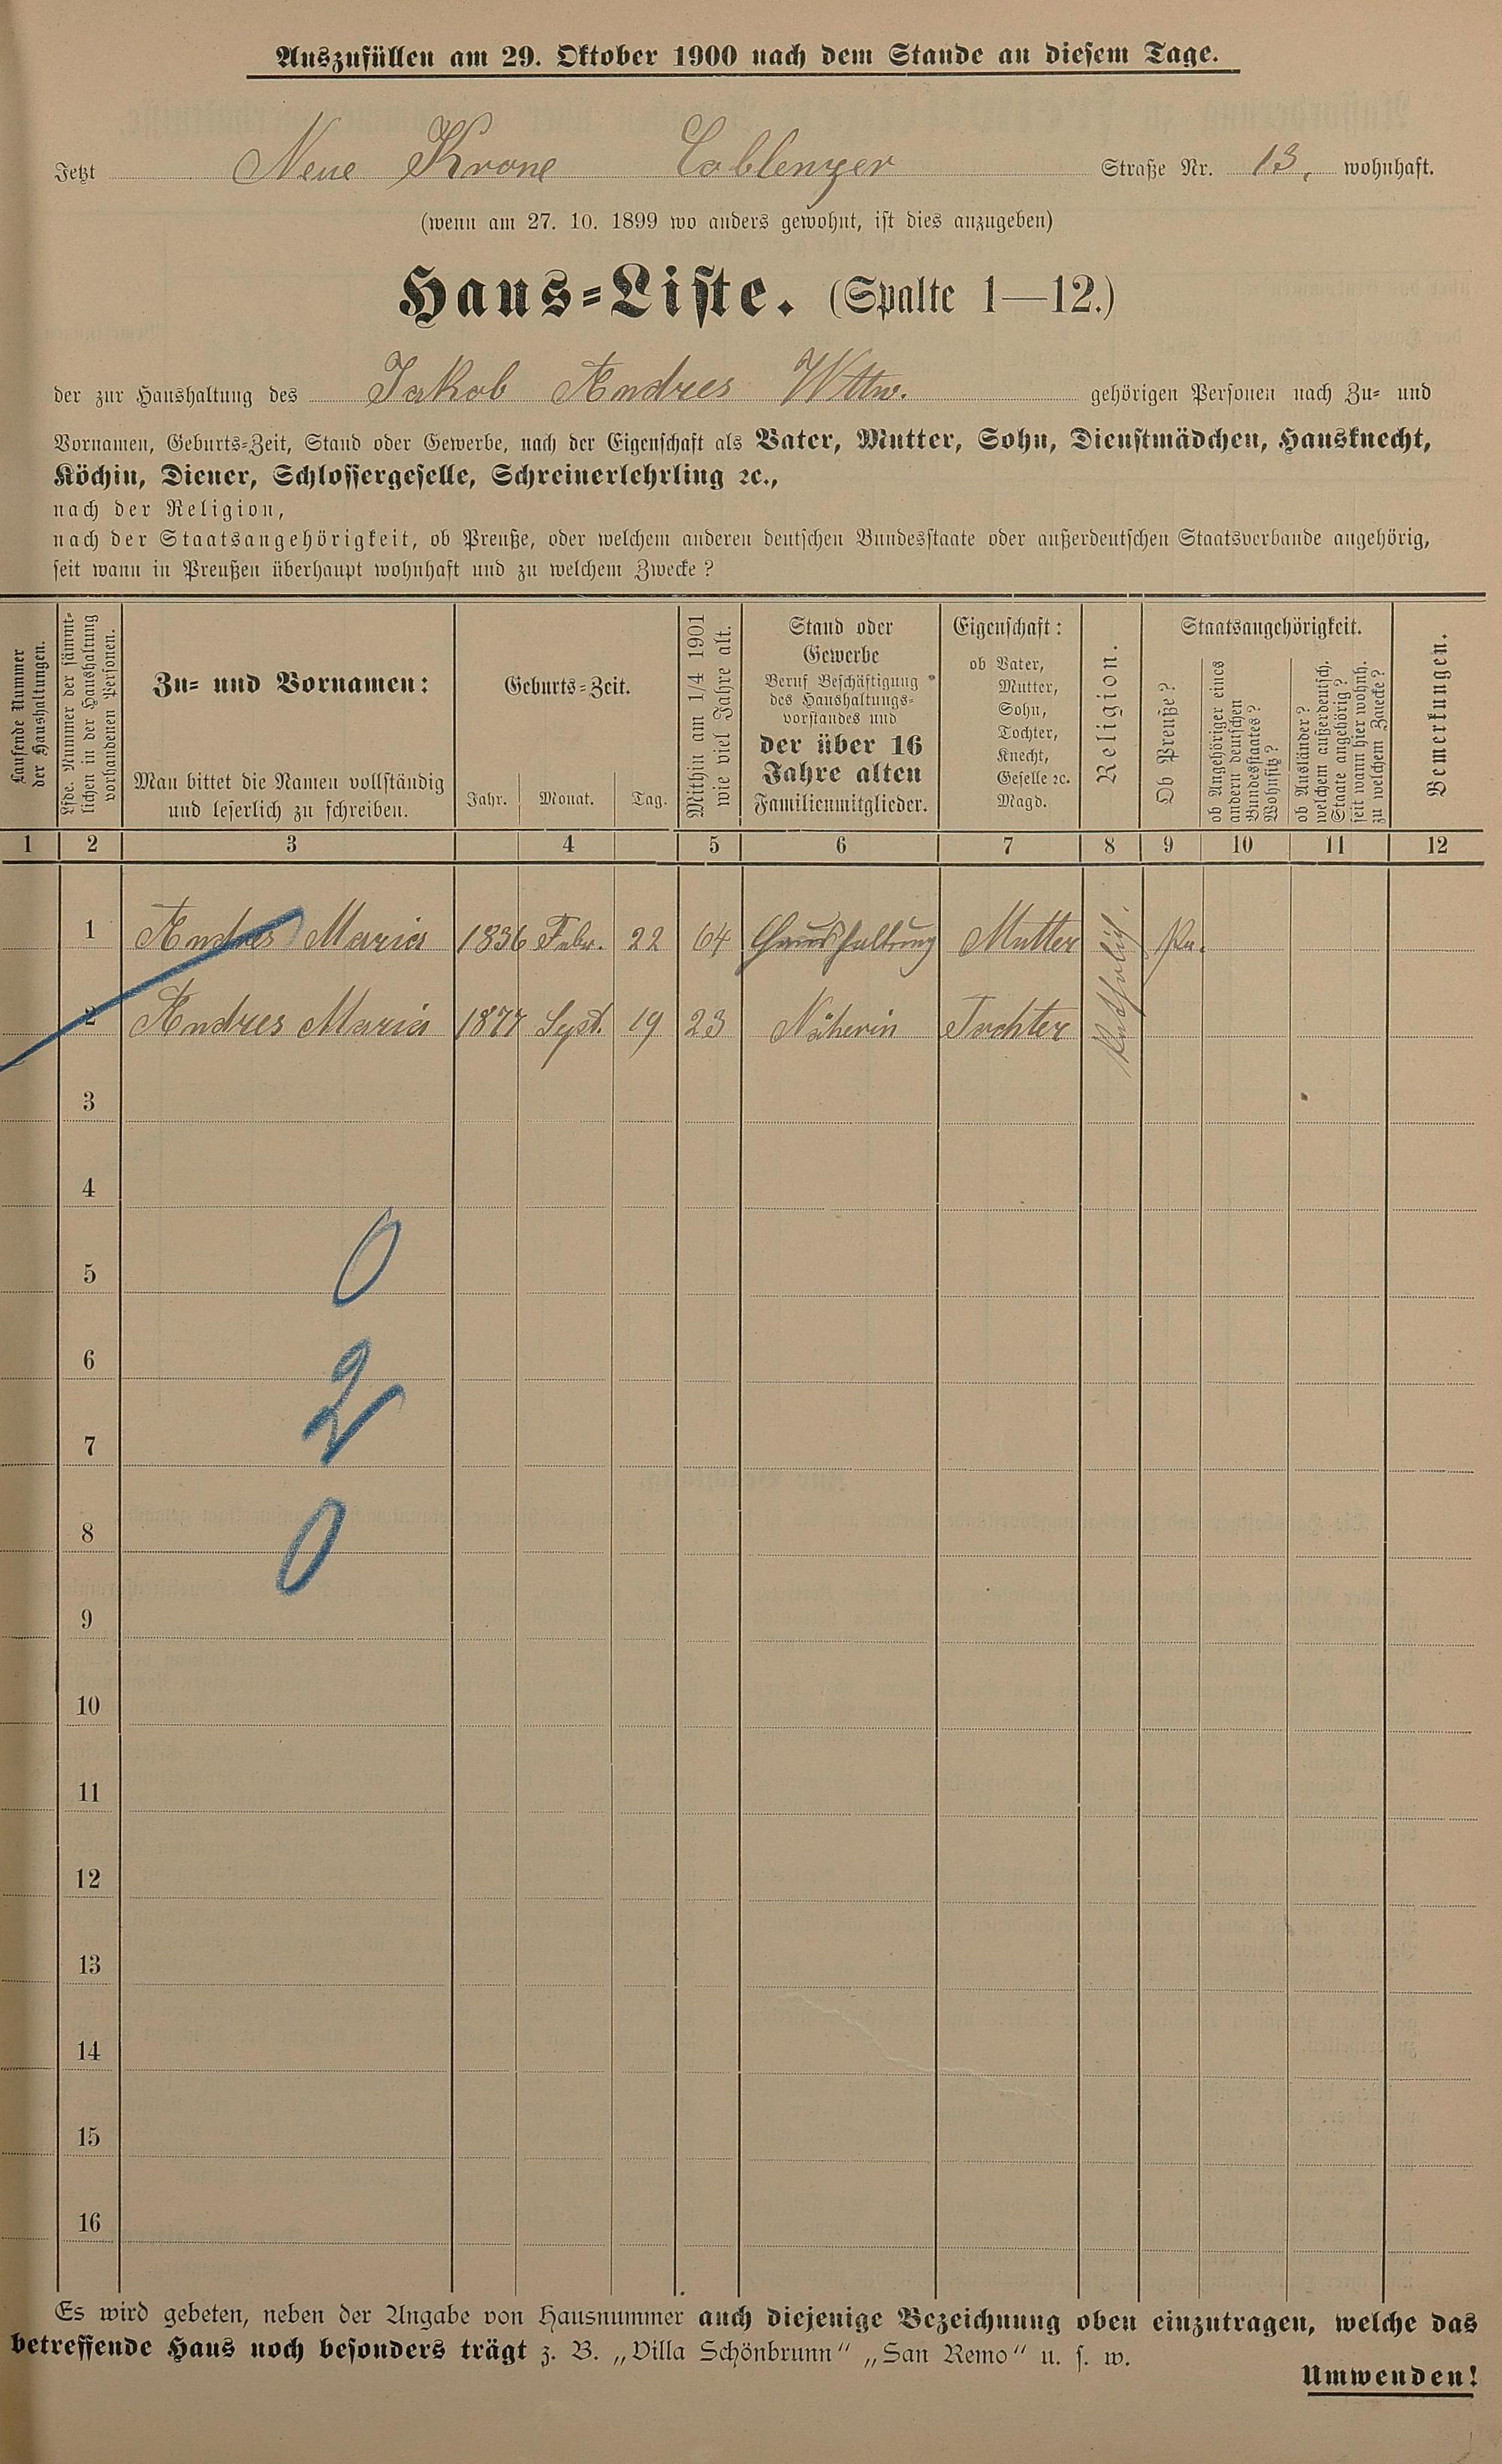 Auszufüllen am 29. Oktober 1900 nach dem Stande an diesem Tage.
Jetzt Neue Krone Coblenzer Straße Nr. 13, wohnhaft.
(wenn am 27. 10. 1899 wo anders gewohnt, ist dies anzugeben)
Haus-Liste. (Spalte 1—12.)
der zur Haushaltung des Jakob Andres Wttw. gehörigen Personen nach Zu- und
Vornamen, Geburts-Zeit, Stand oder Gewerbe, nach der Eigenschaft als Vater, Mutter, Sohn, Dienstmädchen, Hausknecht,
Köchin, Diener, Schlossergeselle, Schreinerlehrling ꝛc.,
nach der Religion,
nach der Staatsangehörigkeit, ob Preuße, oder welchem anderen deutschen Bundesstaate oder außerdeutschen Staatsverbande angehörig,
seit wann in Preußen überhaupt wohnhaft und zu welchem Zwecke?
Laufende Nummer
der Haushaltungen.
Lfde. Nummer der sämmt-
lichen in der Haushaltung
vorhandenen Personen.
Zu- und Vornamen:
Man bittet die Namen vollständig
und leserlich zu schreiben.
Geburts-Zeit.
Jahr. Monat. Tag.
Mithin am 1/4 1901
wie viel Jahre alt.
Stand oder
Gewerbe
Beruf Beschäftigung
des Haushaltungs-
vorstandes und
der über 16
Jahre alten
Familienmitglieder.
Eigenschaft:
ob Vater,
Mutter,
Sohn,
Tochter,
Knecht,
Geselle ꝛc.
Magd.
Religion.
Staatsangehörigkeit.
Ob Preuße?
ob Angehöriger eines
andern deutschen
Bundesstaates?
Wohnsitz?
ob Ausländer?
welchem außerdeutsch.
Staate angehörig?
seit wann hier wohnh.
zu welchem Zwecke?
Bemerkungen.
1 2 3 4 5 6 7 8 9 10 11 12
1 Andres Maria 1836 Febr. 22 64 Haushaltung Mutter Katholisch. Pr.
2 Andres Maria 1877 Sept. 19 23 Näherin Tochter
3
4
0
5
6
2
7
0
8
9
10
11
12
13
14
15
16
Es wird gebeten, neben der Angabe von Hausnummer auch diejenige Bezeichnung oben einzutragen, welche das
betreffende Haus noch besonders trägt z. B. „Villa Schönbrunn“ „San Remo“ u. s. w.
Umwenden!